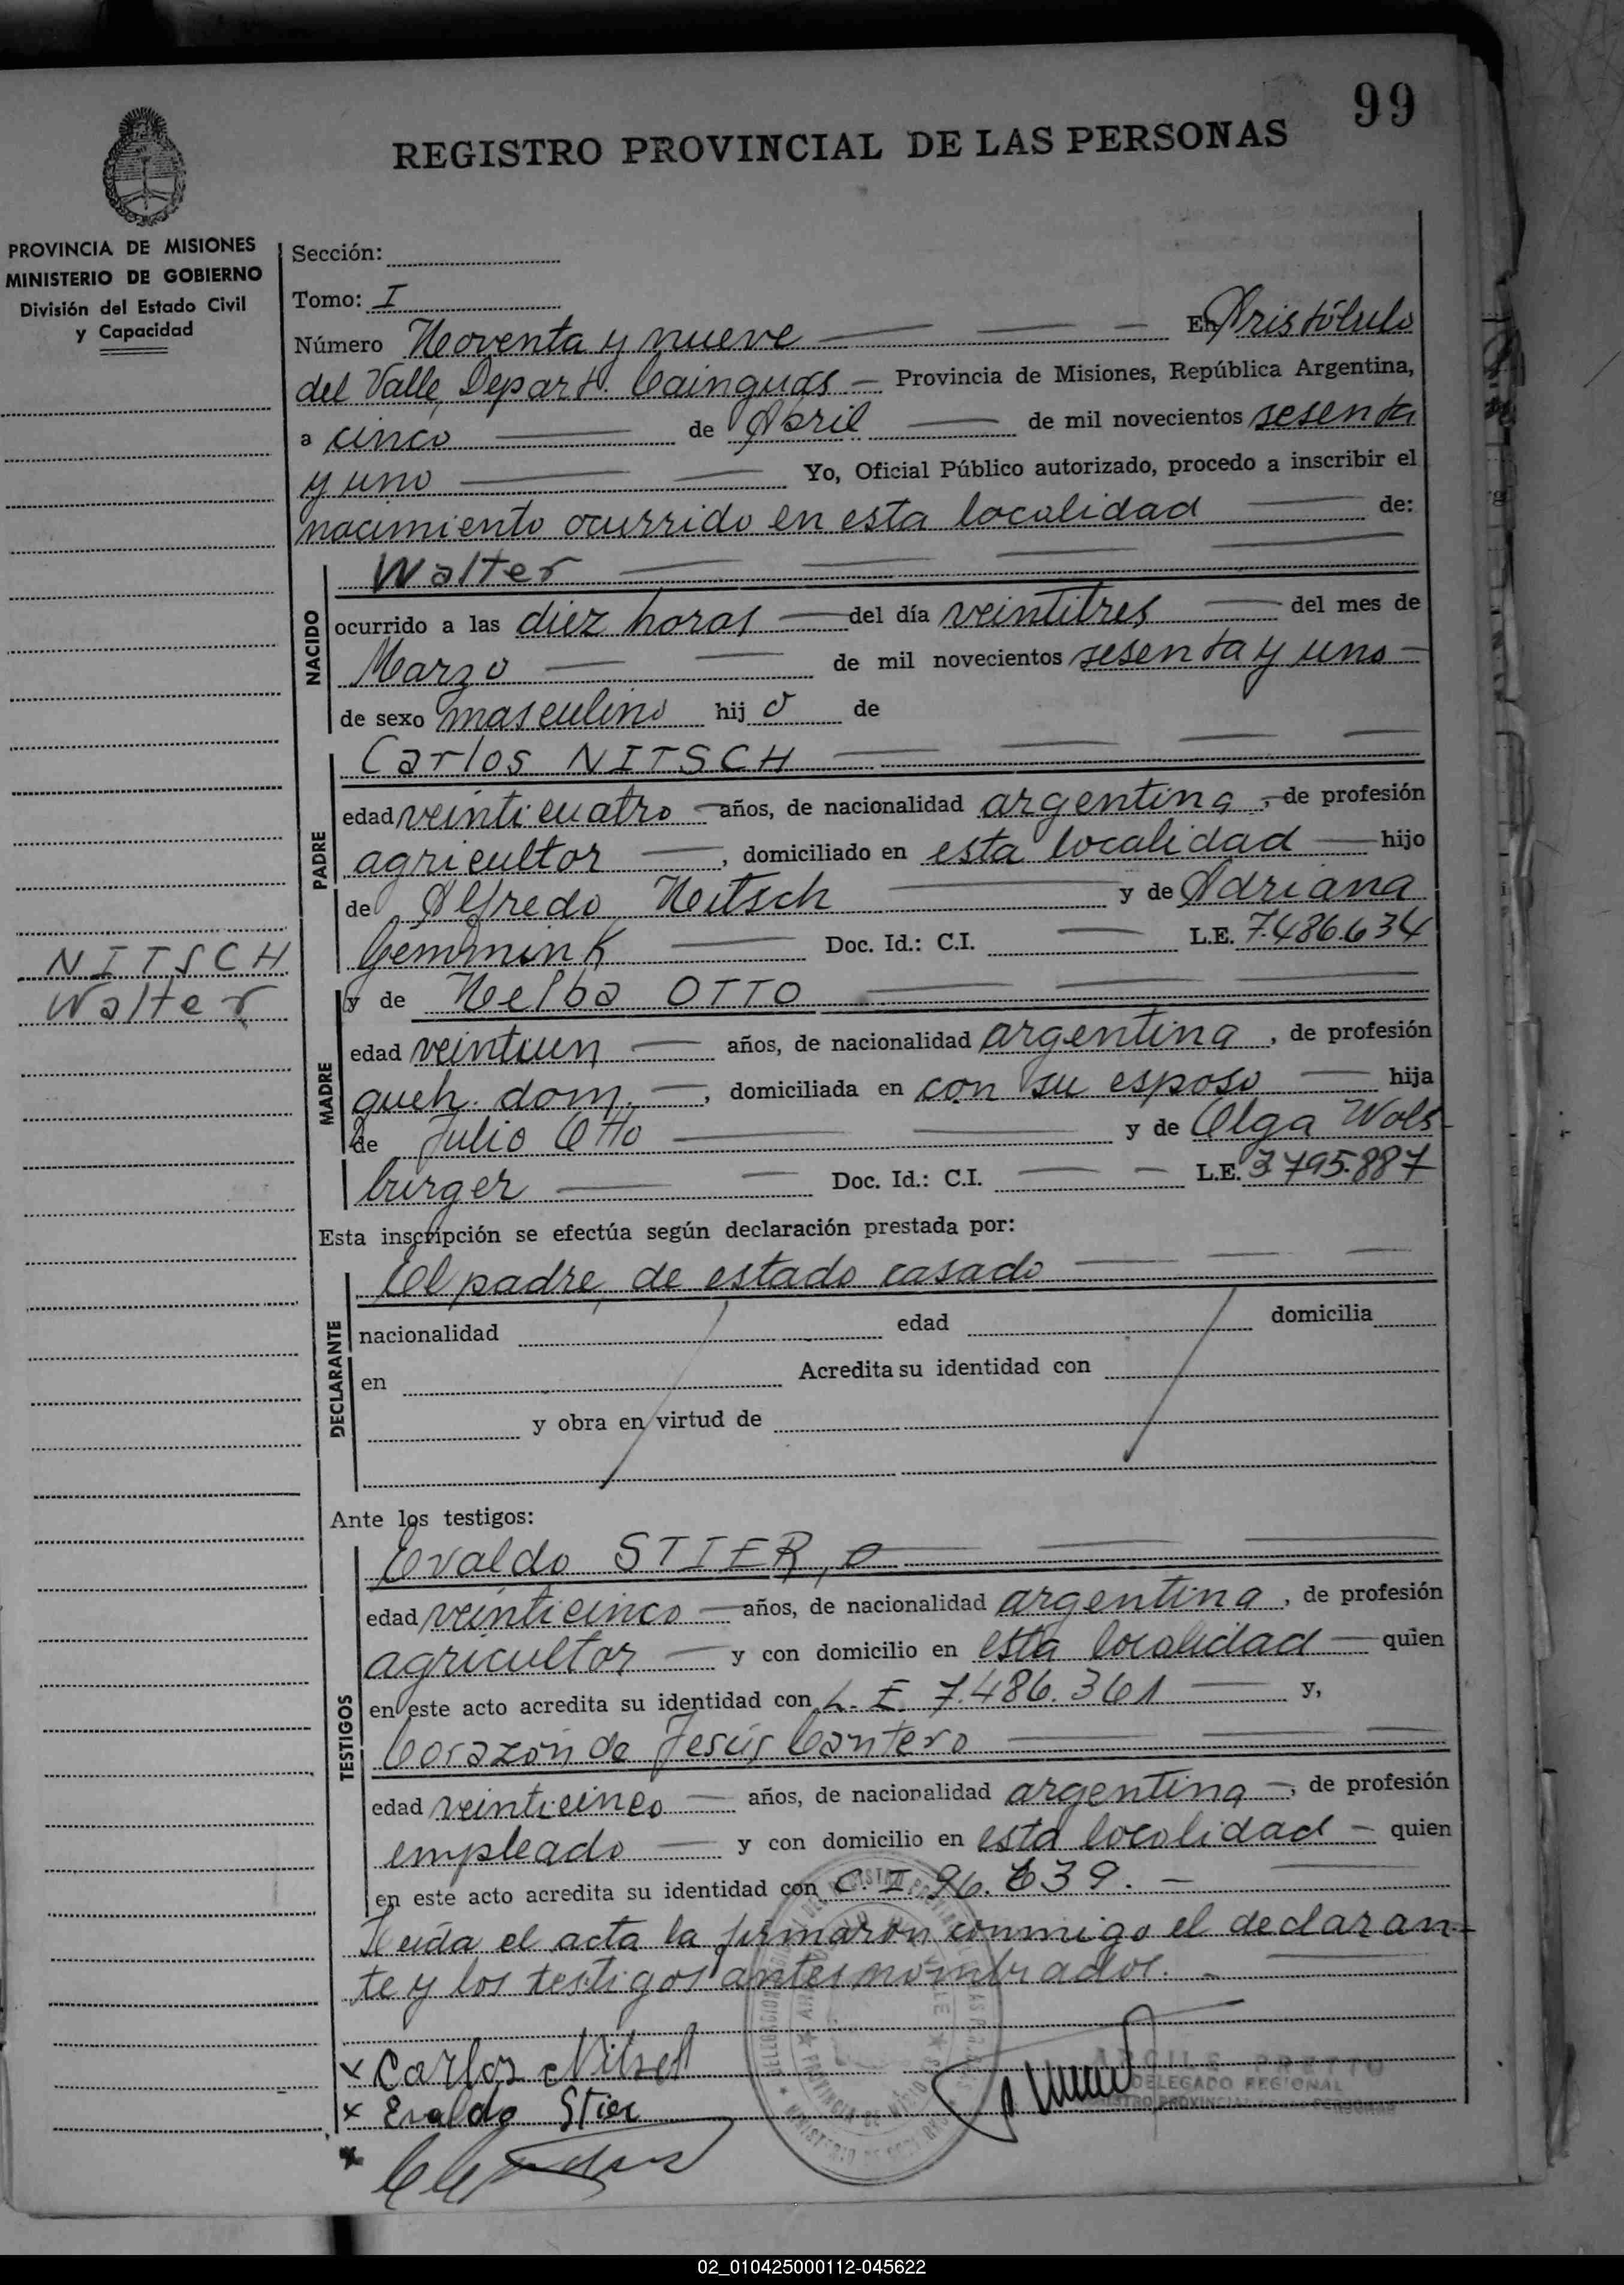 99
REGISTRO PROVINCIAL DE LAS PERSONAS
PROVINCIA DE MISIONES
MINISTERIO DE GOBIERNO
División del Estado Civil
y Capacidad
Sección:
Tomo: I
Número Noventa y nueve En Aristóbulo
del Valle, Depart. Cainguas Provincia de Misiones, República Argentina,
a cinco de Abril de mil novecientos sesenta
y uno Yo, Oficial Público autorizado, procedo a inscribir el
nacimiento ocurrido en esta localidad de:
NACIDO
Walter
ocurrido a las diez horas del día veintitres del mes de
Marzo de mil novecientos sesenta y uno
de sexo masculino hijo de
PADRE
Carlos NITSCH
edad veinticuatro años, de nacionalidad argentina, de profesión
agricultor, domiciliado en esta localidad hijo
de Alfredo Nitsch y de Adriana
Gemmink Doc. Id.: C.I. L.E. 7.486.634
NITSCH
Walter
MADRE
y de Nelba OTTO
edad veintiun años, de nacionalidad argentina, de profesión
queh. dom., domiciliada en con su esposo hija
de Julio Otto y de Olga Wols-
burger Doc. Id.: C.I. L.E. 3.795.887
Esta inscripción se efectúa según declaración prestada por:
DECLARANTE
El padre, de estado casado
nacionalidad edad domicilia
en Acredita su identidad con
y obra en virtud de
Ante los testigos:
TESTIGOS
Evaldo STIER, o
edad veinticinco años, de nacionalidad argentina, de profesión
agricultor y con domicilio en esta localidad quien
en este acto acredita su identidad con L. E. 7.486.361 y,
Corazón de Jesús Cantero
edad veinticinco años, de nacionalidad argentina, de profesión
empleado y con domicilio en esta localidad quien
en este acto acredita su identidad con C. I. 96.639.
Leída el acta la firmaron conmigo el declaran-
te y los testigos antes nombrados.
x Carlos Nitsch
x Evaldo Stier
x
DELEGADO REGIONAL
REGISTRO PROVINCIAL DE LAS PERSONAS
02_010425000112-045622